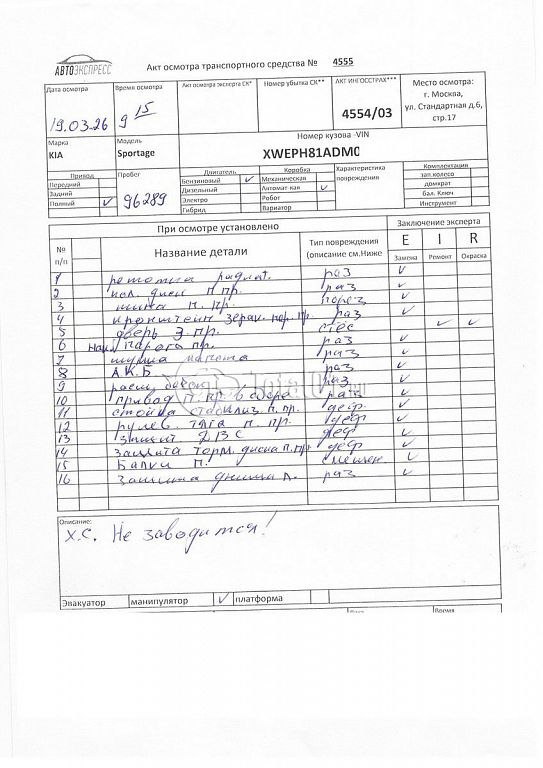 АВТОЭКСПРЕСС
Акт осмотра транспортного средства № 4555
Дата осмотра
Время осмотра
Акт осмотра эксперта СК*
Номер убытка СК**
АКТ ИНГОССТРАХ***
Место осмотра:
г. Москва,
ул. Стандартная д.6,
стр.17
19.03.26
9 15
4554/03
Марка
Модель
Номер кузова -VIN
KIA
Sportage
XWEPH81ADM0
Привод
Пробег
Двигатель
Коробка
Характеристика повреждения
Комплектация
Передний
Бензиновый ✓
Механическая
зап.колесо
Задний
96289
Дизельный
Автомат-кая ✓
домкрат
Полный ✓
Электро
Робот
бал. Ключ
Гибрид
Вариатор
Инструмент
При осмотре установлено
Заключение эксперта
№ п/п
Название детали
Тип повреждения
(описание см.Ниже
E I R
Замена Ремонт Окраска
1 радиат. раз ✓
2 кол. диск п.пр. раз ✓
3 шина п. пр. порез ✓
4 кронштейн зерк. пр. раз ✓
5 дверь з.пр. ✓ ✓
6 накл порога пр. раз ✓
7 капота раз ✓
8 А.К.Б раз ✓
9 расш. бачок раз ✓
10 привод п. пр. в сборе раз ✓
11 стойка стабилиз п. пр. деф ✓
12 рулев. тяга п. пр. деф ✓
13 защит ДВС деф ✓
14 защита торм. диска п.пр. деф ✓
15 Балки п. смещен. ✓
16 Защита днища л. раз ✓
Описание:
Х.С. Не заводится!
Эвакуатор
манипулятор ✓
платформа
Время